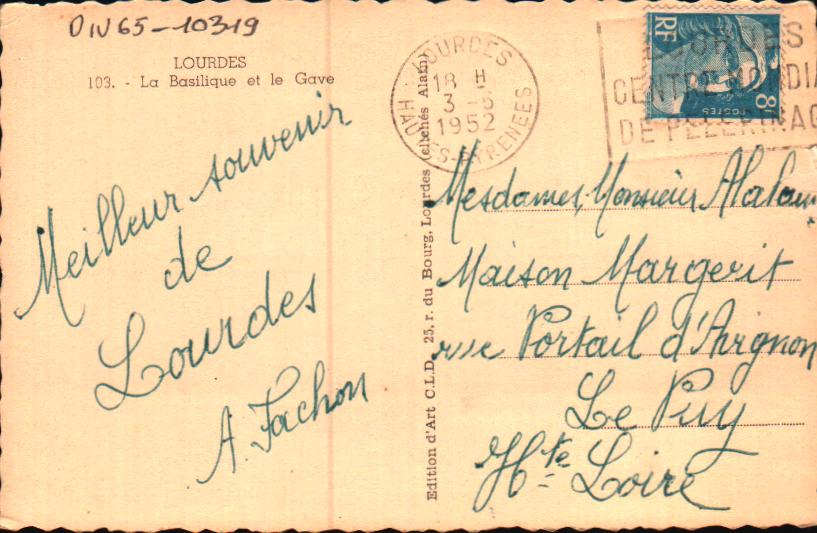 DIV65-10319
LOURDES
103. - La Basilique et le Gave
Meilleur souvenir
de
Lourdes
A. Fachon
Edition d'Art C.L.D. 25, r. du Bourg, Lourdes (clichés Alam)
LOURDES
18 H
3 -6
1952
HAUTES-PYRENEES
LOURDES
CENTRE MONDIA
DE PELERINAG
RF
POSTES
8F
Mesdames, Monsieur
Maison Margerit
rue Portail d'Avignon
Le Puy
Hte Loire